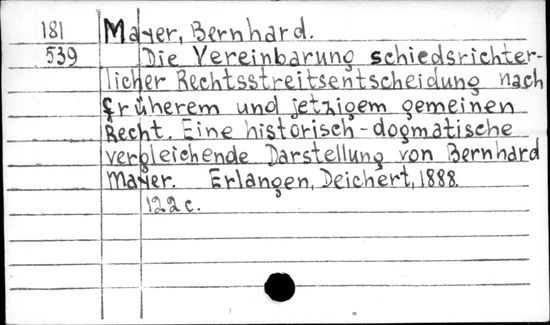 181 Mayer, Bernhard.
539 Die Vereinbarung schiedsrichter-
licher Rechtsstreitsentscheidung nach
früherem und jetzigem gemeinen
Recht. Eine historisch-dogmatische
vergleichende Darstellung von Bernhard
Mayer. Erlangen, Deichert, 1888.
122 c.